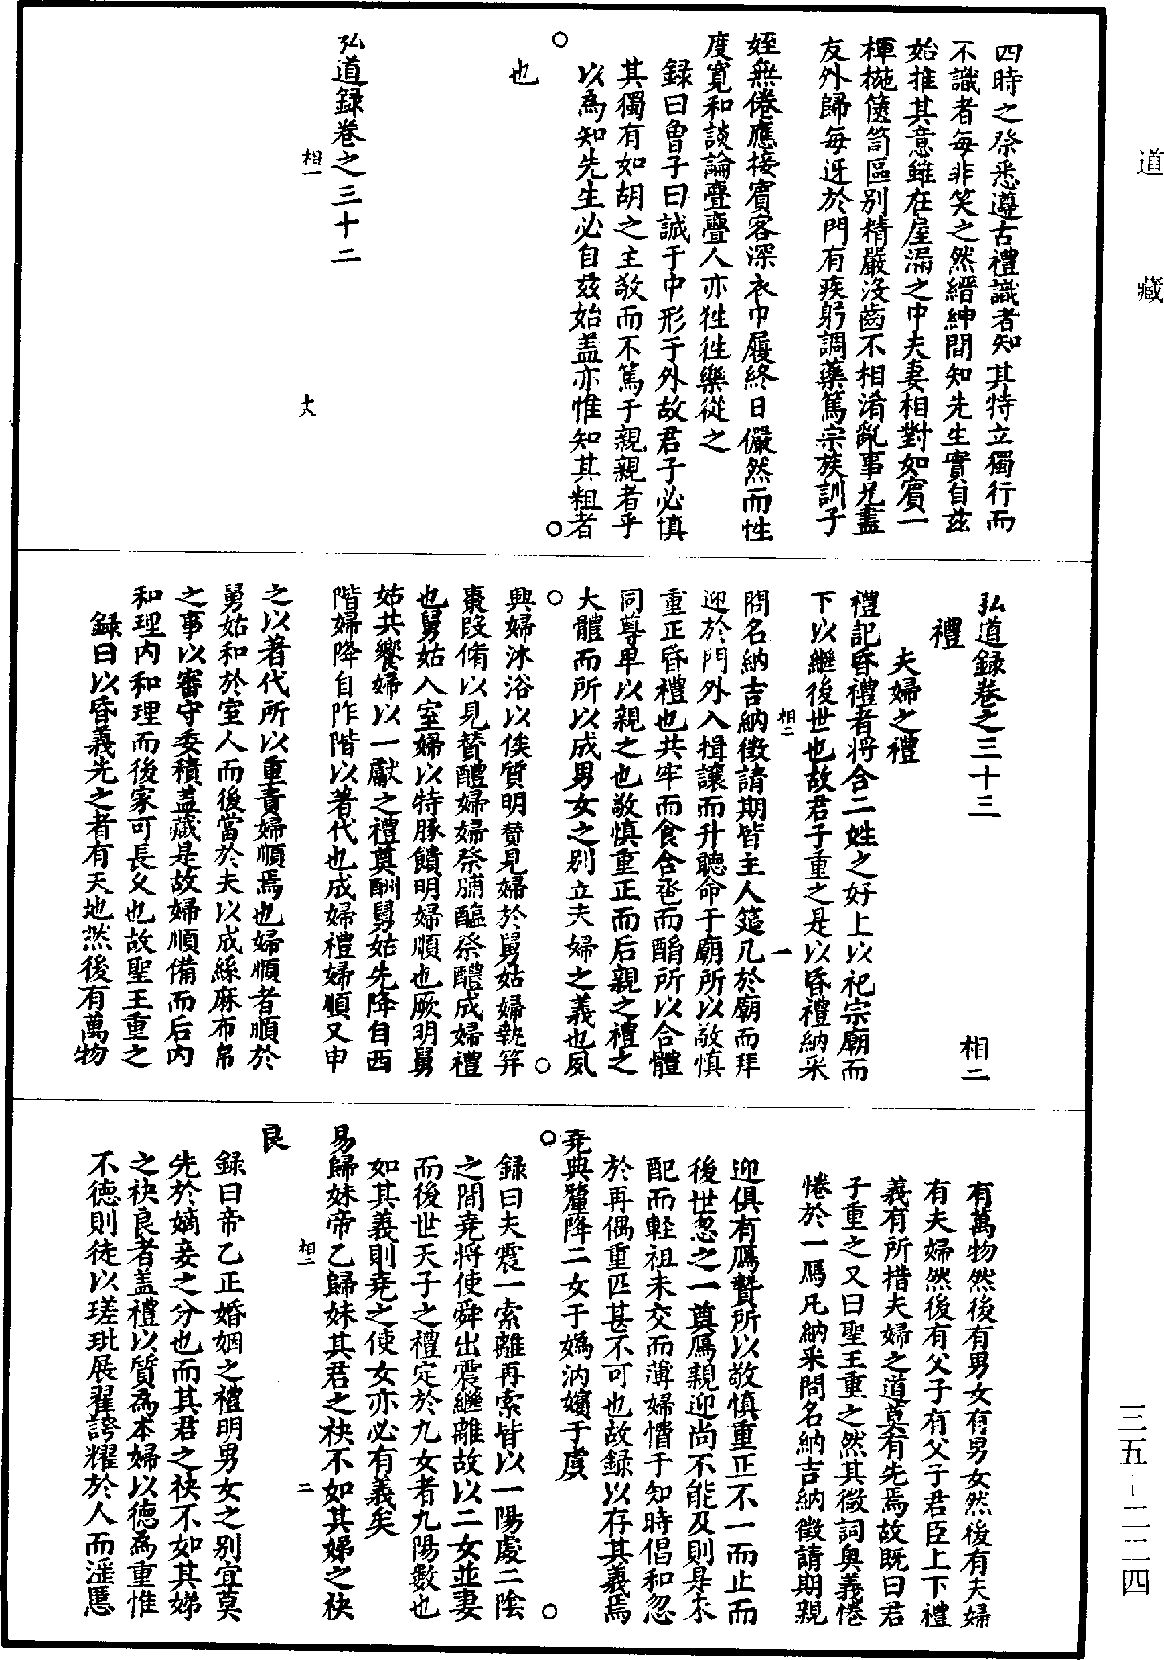 道藏
四時之祭悉遵古禮識者知其特立獨行而
不識者每非笑之然縉紳間知先生實自茲
始推其意雖在屋漏之中夫妻相對如賓一
椲椸篋笥區別精嚴沒齒不相淆亂事兄盡
友外歸每迓於門有疾躬調藥篤宗族訓子
姪無倦應接賓客深衣巾履終日儼然而性
度寬和談論亹亹人亦徃徃樂從之
錄曰曾子曰誠于中形于外故君子必慎
其獨有如胡之主敬而不篤于親親者乎
以為知先生必自茲始盖亦惟知其粗者
也
弘道錄卷之三十二
相一
十八
弘道錄卷之三十三
相二
禮
夫婦之禮
禮記昏禮者將合二姓之好上以祀宗廟而
下以繼後世也故君子重之是以昏禮納采
相二
一
問名納吉納徵請期皆主人筵几於廟而拜
迎於門外入揖讓而升聽命于廟所以敬慎
重正昏禮也共牢而食合巹而酳所以合體
同尊卑以親之也敬慎重正而后親之禮之
大體而所以成男女之別立夫婦之義也夙
興婦沐浴以俟質明贊見婦於舅姑婦執笲
棗段脩以見贊醴婦婦祭脯醢祭醴成婦禮
也舅姑入室婦以特豚饋明婦順也厥明舅
姑共饗婦以一獻之禮奠酬舅姑先降自西
階婦降自阼階以著代也成婦禮婦順又申
之以著代所以重責婦順焉也婦順者順於
舅姑和於室人而後當於夫以成絲麻布帛
之事以審守委積盖藏是故婦順備而后內
和理內和理而後家可長久也故聖王重之
錄曰以昏義先之者有天地然後有萬物
有萬物然後有男女有男女然後有夫婦
有夫婦然後有父子有父子君臣上下禮
義有所措夫婦之道莫有先焉故既曰君
子重之又曰聖王重之然其徵詞奧義惓
惓於一鴈凡納采問名納吉納徵請期親
迎俱有鴈贄所以敬慎重正不一而止而
後世忽之一奠鴈親迎尚不能及則是未
配而輕祖未交而薄婦惜于知時倡和忽
於再偶重匹甚不可也故錄以存其義焉
堯典釐降二女于媯汭嬪于虞
錄曰夫震一索離再索皆以一陽處二陰
之間堯將使舜出震繼離故以二女並妻
而後世天子之禮定於九女者九陽數也
如其義則堯之使女亦必有義矣
易歸妹帝乙歸妹其君之袂不如其娣之袂
相二
二
良
錄曰帝乙正婚姻之禮明男女之別宜莫
先於嫡妾之分也而其君之袂不如其娣
之袂良者盖禮以質為本婦以德為重惟
不德則徒以瑳玼展翟誇耀於人而滛慝
三五-二二四